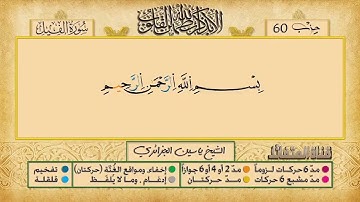 حزب 60
ألا بذكر الله تطمئن القلوب
سورة الفيل
بسم الله الرحمن الرحيم
الشيخ ياسين الجزائري
مدّ 6 حركات لزوماً
مدّ 2 أو 4 أو 6 جوازاً
إخفاء، ومواقع الغُنَّة (حركتان)
تفخيم
مدّ مشبع 6 حركات
مدّ حركتان
إدغام، وما لا يُلفَظ
قلقلة